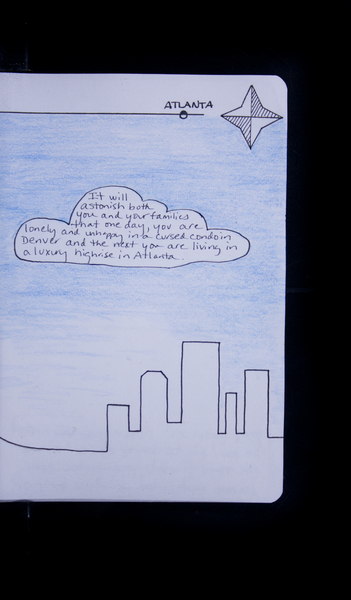 ATLANTA
It will
astonish both
you and your families
that one day, you are
lonely and unhappy in a cursed condo in
Denver and the next you are living in
a luxury highrise in Atlanta.